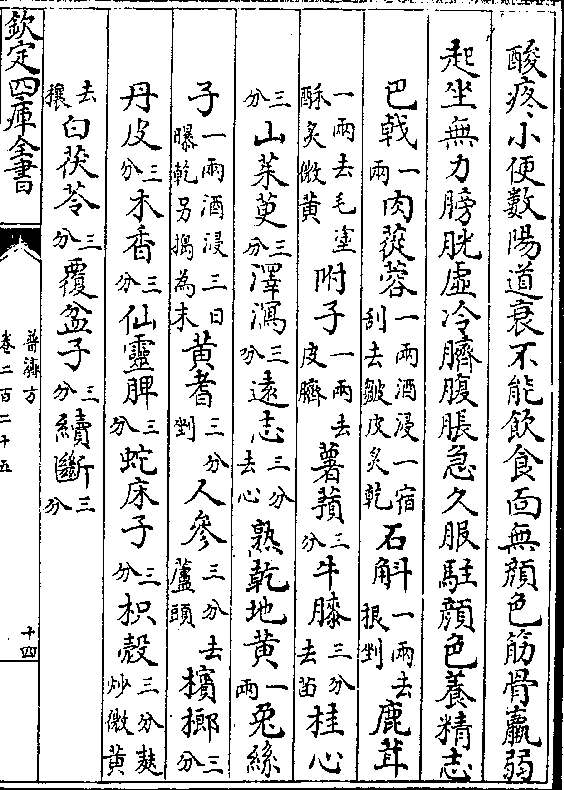 酸疼小便數陽道衰不能飲食面無顔色筋骨羸弱
起坐無力膀胱虚冷臍腹脹急久服駐顔色養精志
巴戟一兩肉蓯蓉一兩酒浸一宿刮去皺皮炙乾石斛一兩去根剉鹿茸
一兩去毛塗酥炙微黄附子一兩去皮臍薯蕷三分牛膝三分去苗桂心
三分山茱萸三分澤瀉三分遠志三分去心熟乾地黄一兩兔絲
子一兩酒浸三日曝乾另搗為末黄耆三分剉人參三分去蘆頭檳榔三分
丹皮三分木香三分仙靈脾三分蛇床子三分枳殻三分麩炒微黄
去穰白茯苓三分覆盆子三分續斷三分
欽定四庫全書
普濟方
卷二百二十五
十四